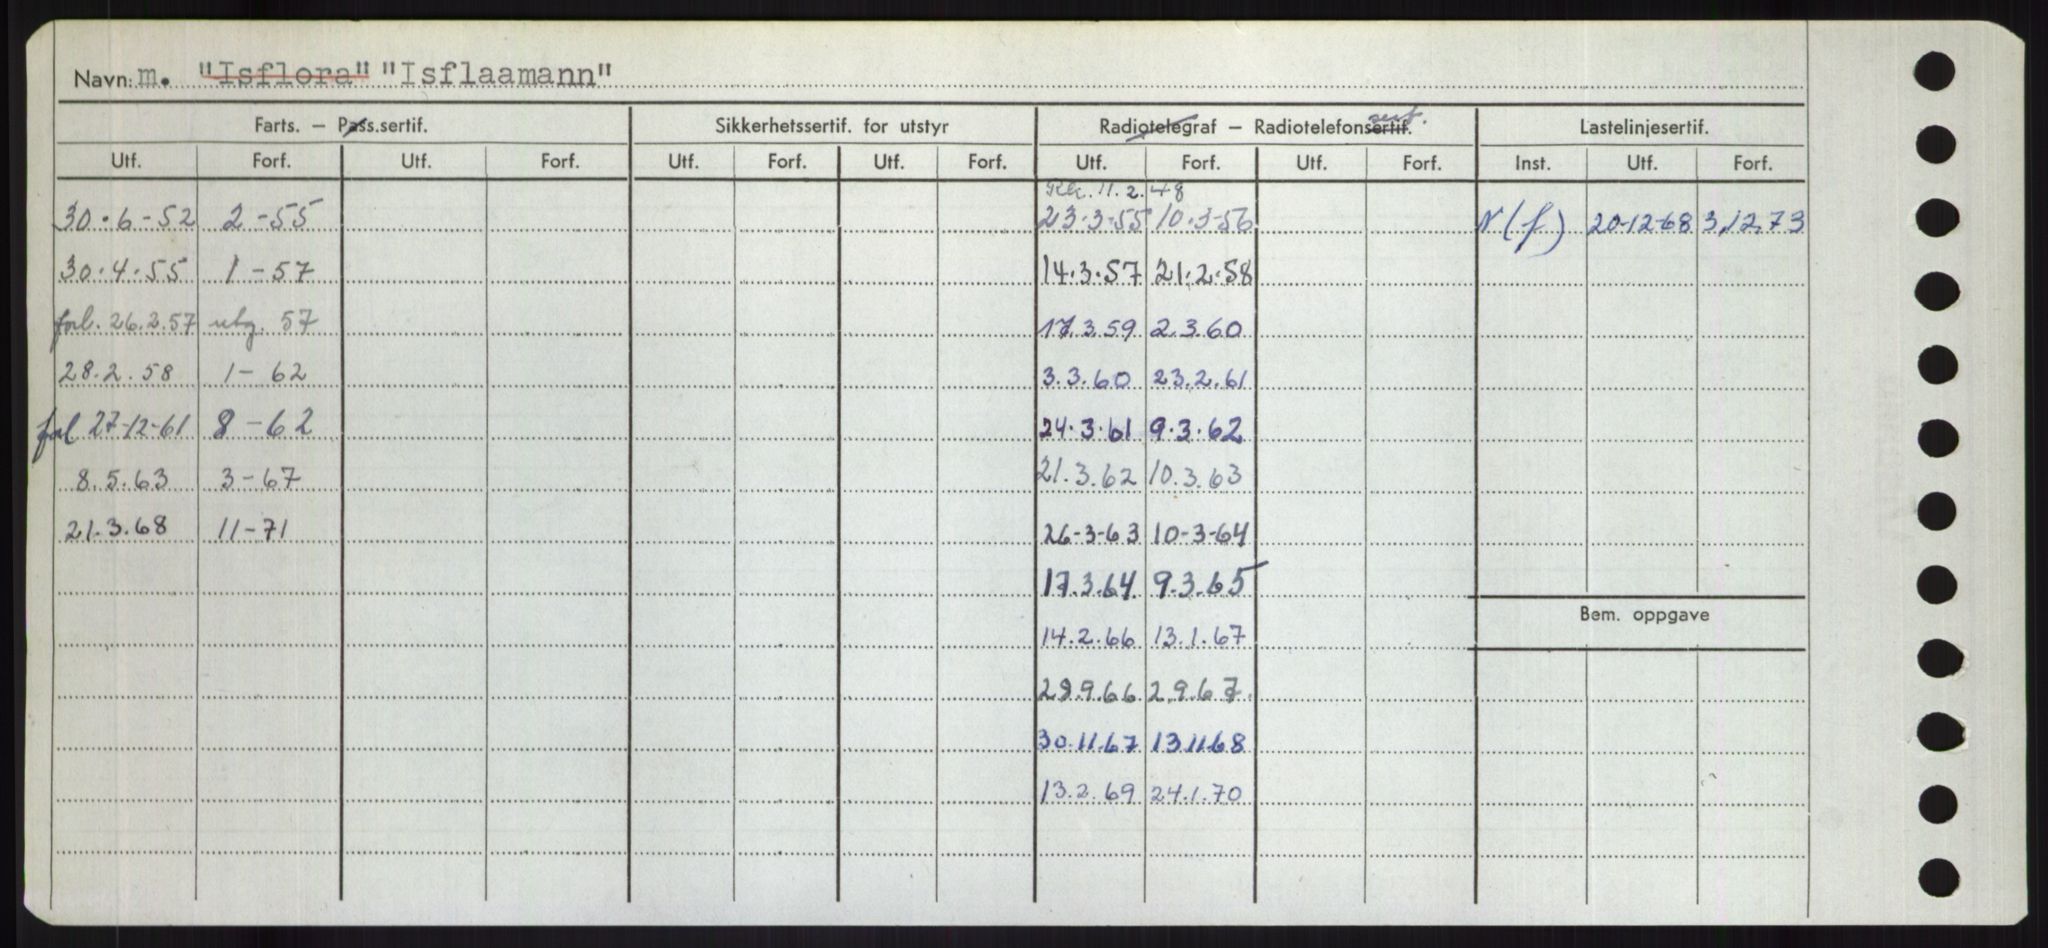 Navn: m. "Isflora" "Isflaamann"
Farts. – Pass.sertif. Sikkerhetssertif. for utstyr Radiotelegraf – Radiotelefonsertif. sert. Lastelinjesertif.
Utf. Forf. Utf. Forf. Utf. Forf. Utf. Forf. Utf. Forf. Utf. Forf. Inst. Utf. Forf.
11.2.48
30.6-52 2-55 23.3-55 10.3-56 N(f) 20-12-68 3.12.73
30.4.55 1-57 14.3.57 21.2.58
forl. 26.2.57 utg. 57 17.3.59 2.3.60
28.2.58 1-62 3.3.60 23.2.61
forl 27-12-61 8-62 24.3.61 9.3.62
8.5.63 3-67 21.3.62 10.3.63
21.3.68 11-71 26-3-63 10-3-64
17.3.64 9.3.65
Bem. oppgave
14.2.66 13.1.67
29.9.66 2.9.67.
30.11.67 13.11.68
13.2.69 24.1.70